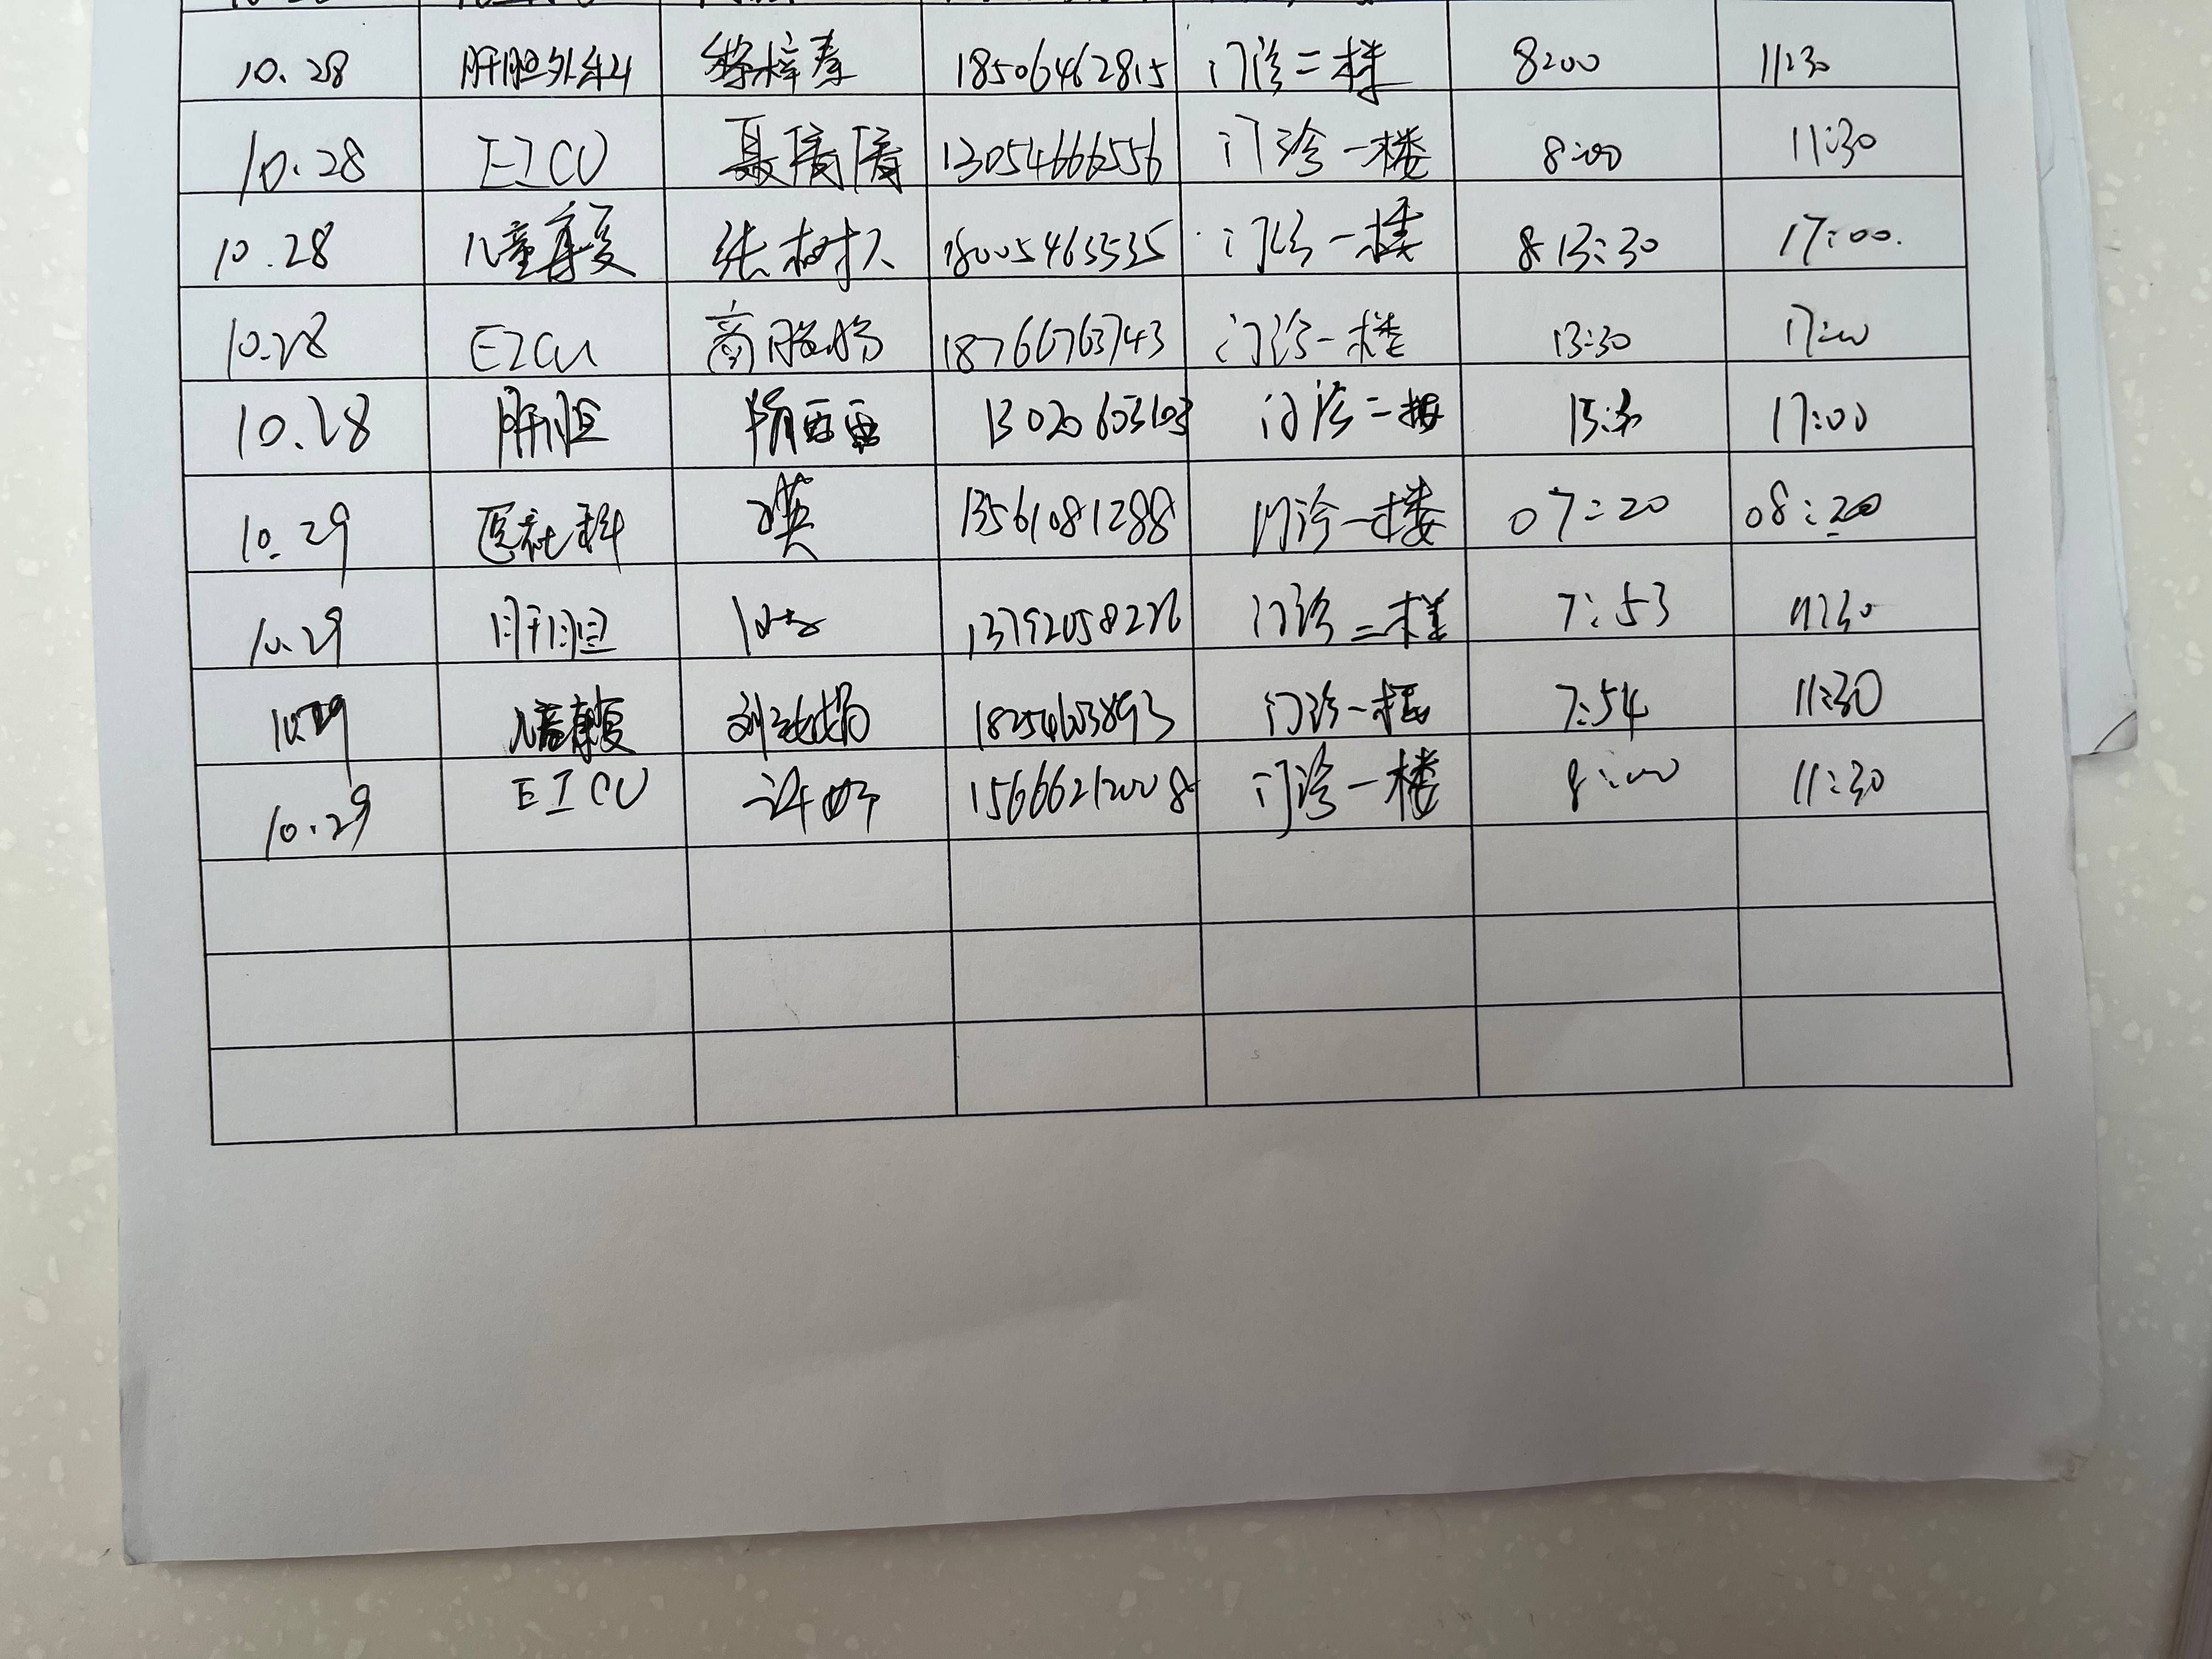 10.28 肝胆外科 梓春 18506462815 门诊二楼 8:00 11:30
10.28 EICU 聂倩倩 13054666556 门诊一楼 8:00 11:30
10.28 儿童康复 张树人 18005463535 门诊一楼 8 13:30 17:00.
10.28 EICU 商 18766763743 门诊一楼 13:30 17:00
10.28 肝胆 隋雷雷 门诊二楼 17:00
10.29 医社科 13561081288 门诊一楼 07:20 08:20
10.29 肝胆 门诊二楼 7:53 11:30
10.29 儿童康复 刘 18254603893 门诊一楼 7:54 11:30
10.29 EICU 许 15666212008 门诊一楼 8:00 11:30